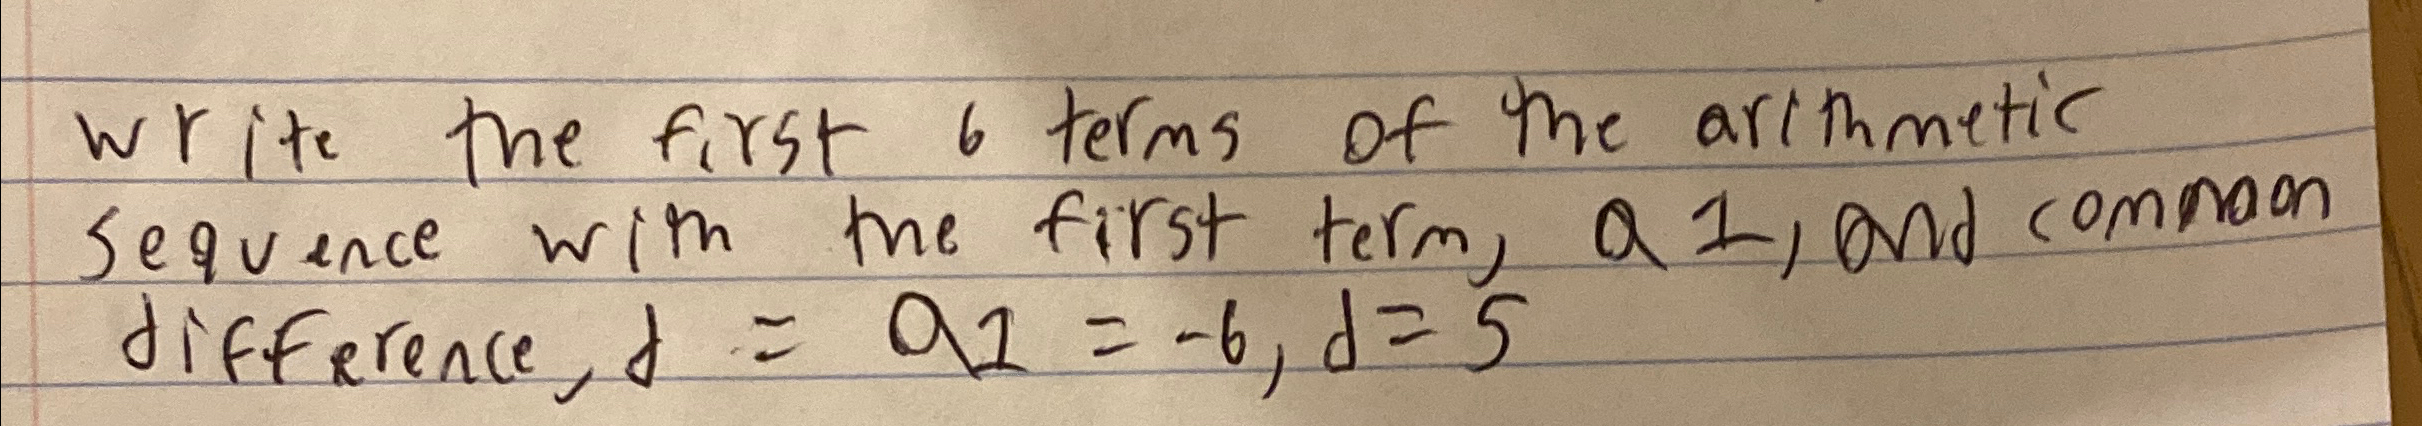 write the first 6 terms of the arithmetic
sequence with the first term, a 1, and common
difference, d = a1 = -6, d = 5